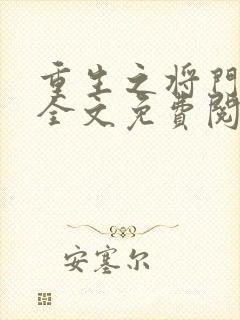 重生之将门
全文免費閱
安塞尔